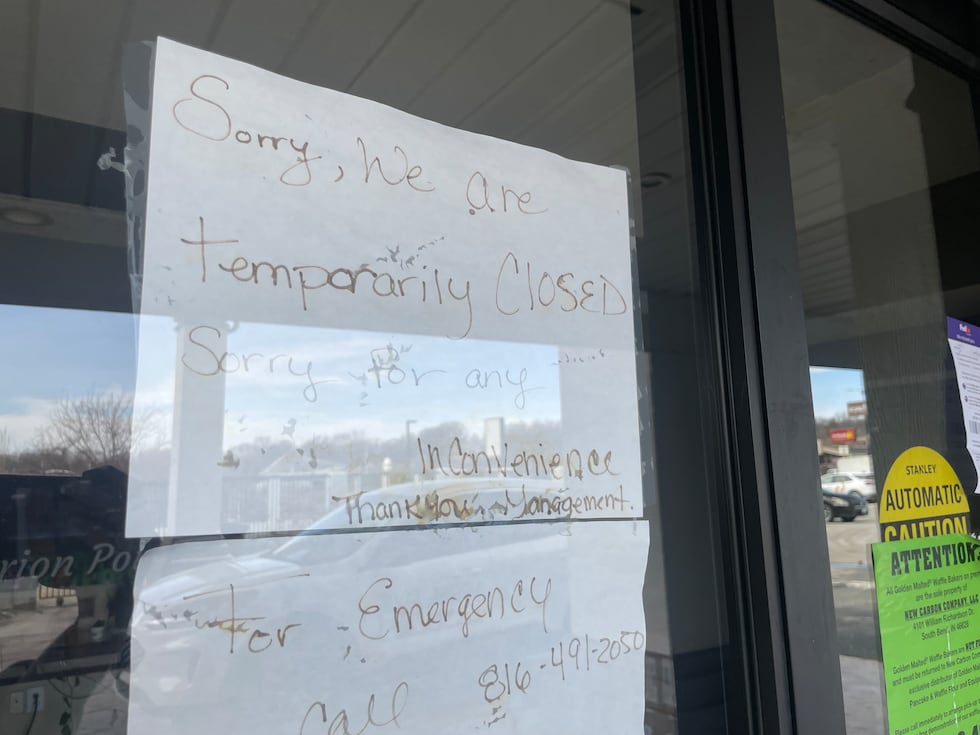 Sorry, We are
Temporarily CLOSED
Sorry for any
InConvenience
Thank you, Management.
For Emergency
Call 816-491-2050
rion Po
FedEx
STANLEY
AUTOMATIC
CAUTION
ATTENTION
All Golden Malted® Waffle Bakers on
are the sole property of
NEW CARBON COMPANY, LLC
4101 William Richardson Dr.
South Bend, IN 46628
Golden Malted® Waffle Bakers are NOT
and must be returned to New Carbon
exclusive distributor of Golden
Pancake & Waffle Flour and
Please call immediately to arrange pick-up